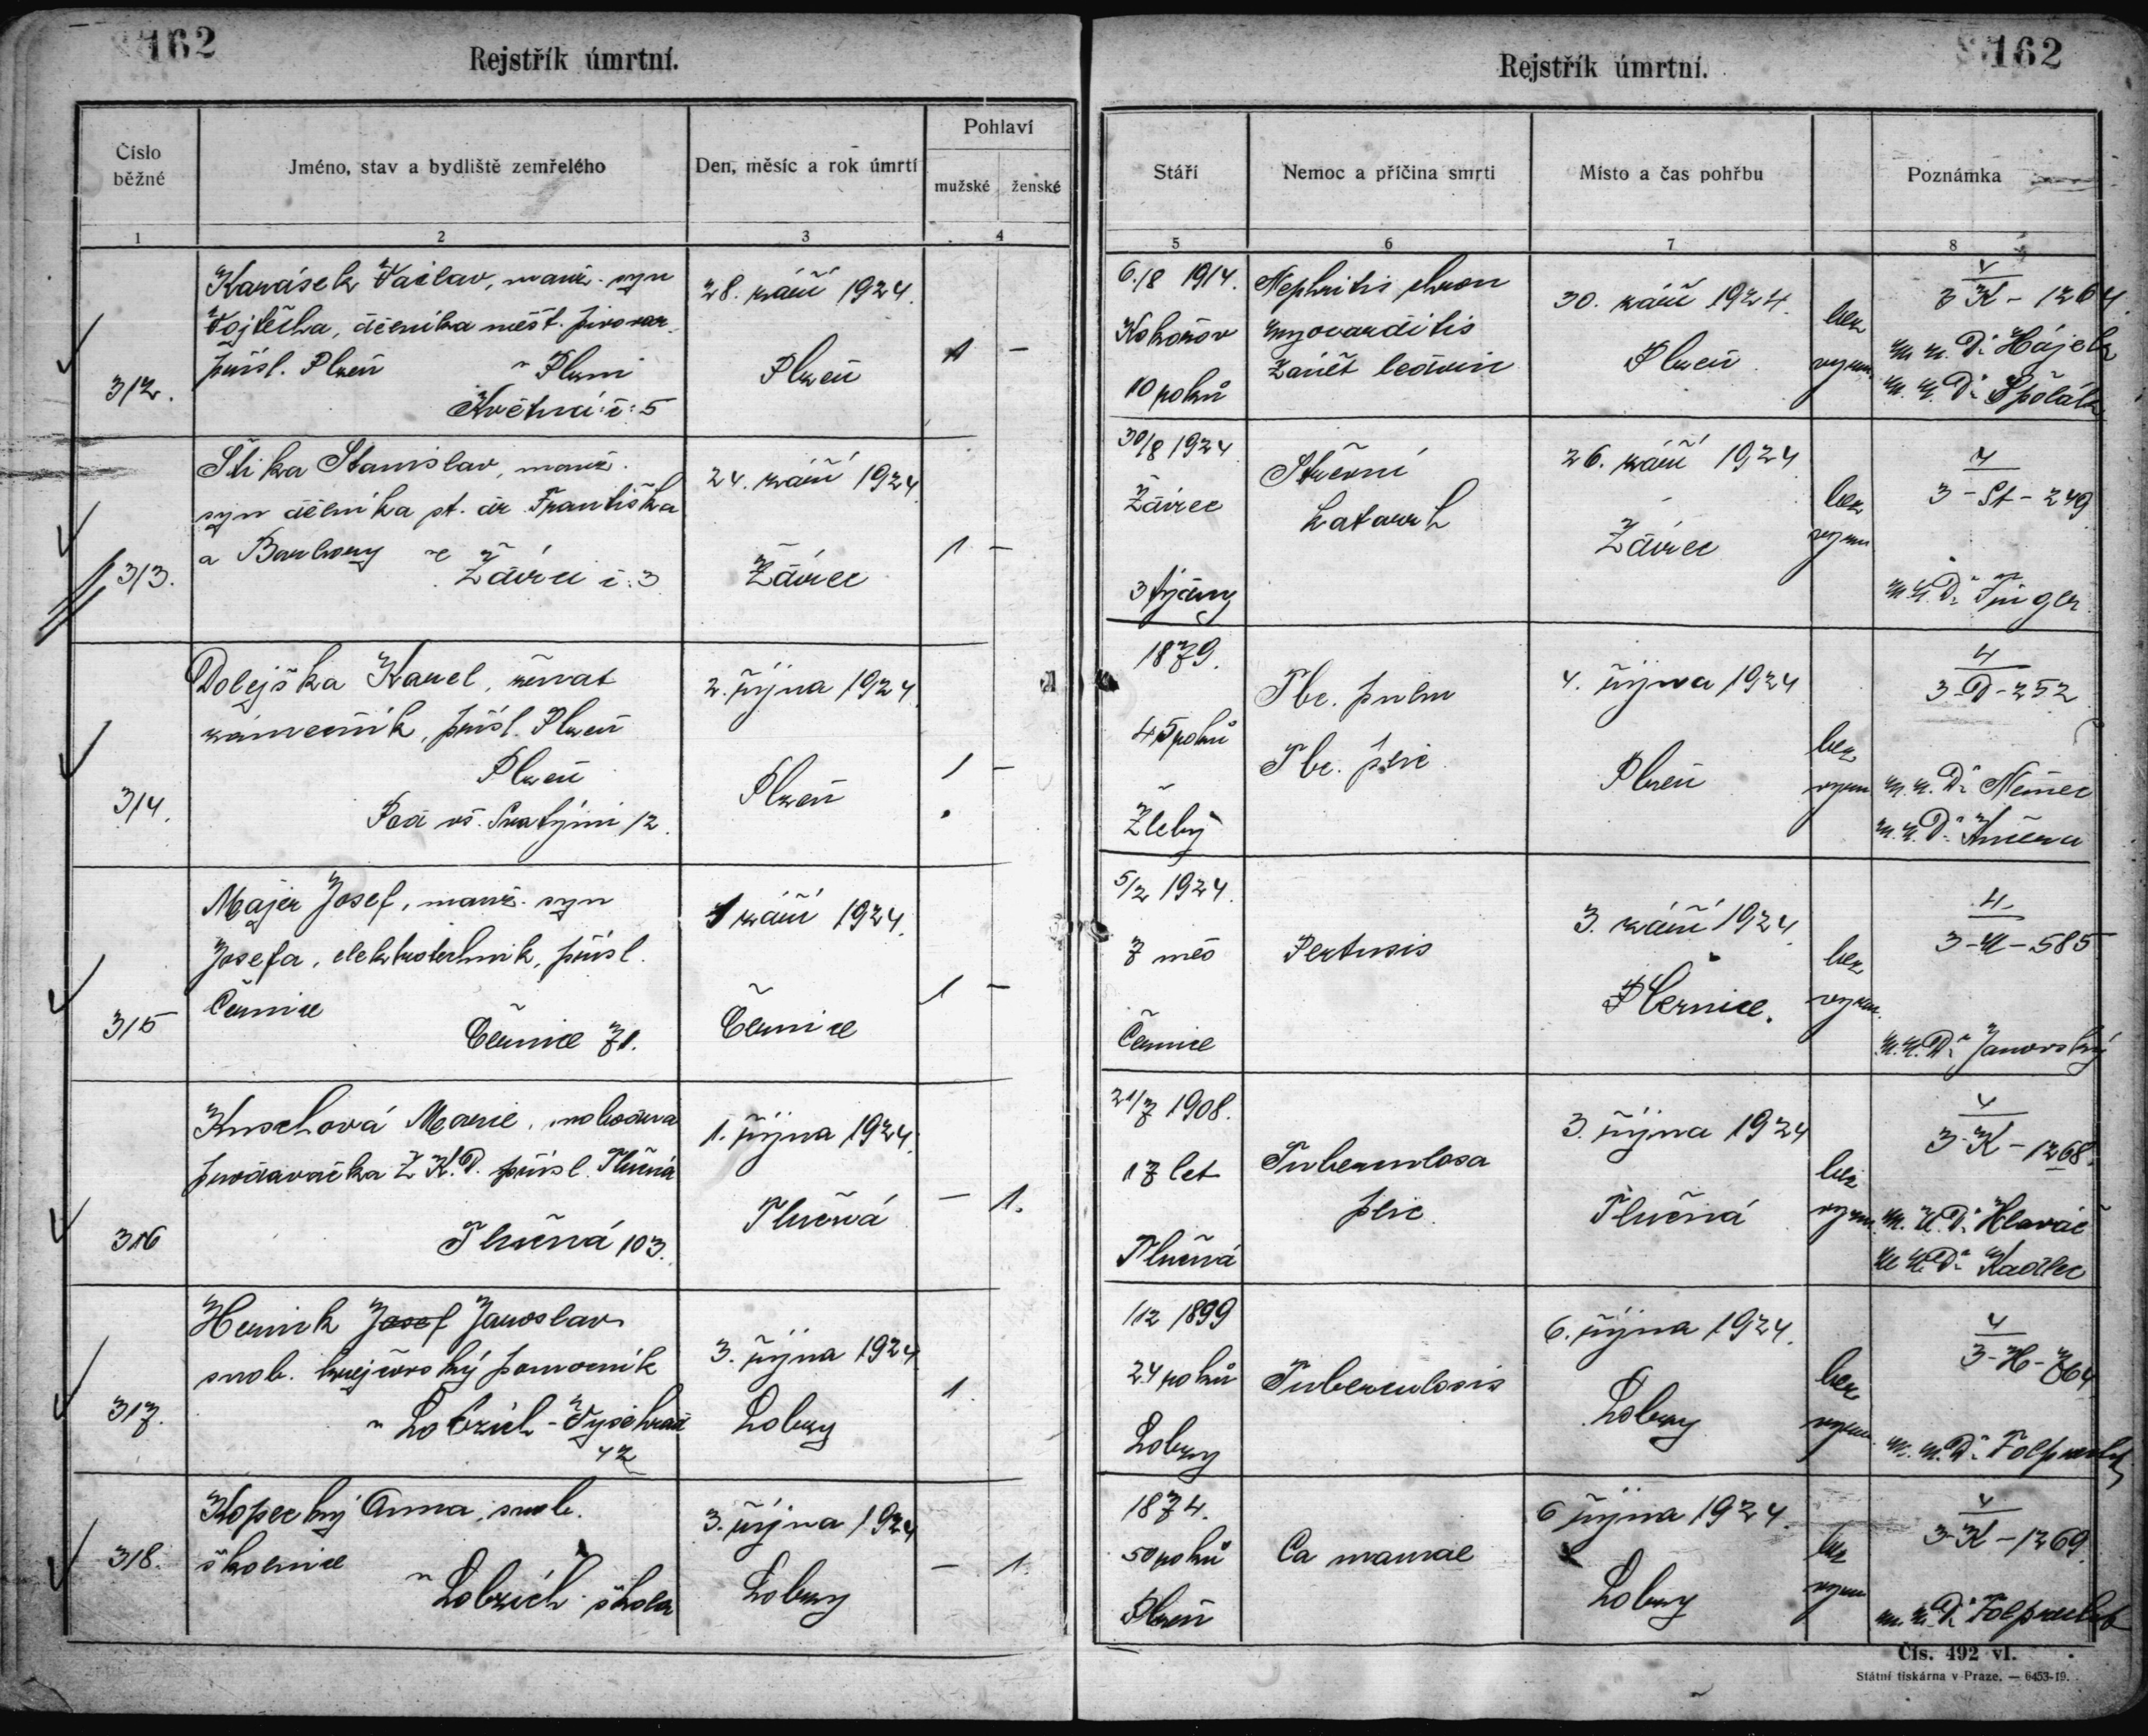 162
Rejstřík úmrtní.
Číslo běžné
Jméno, stav a bydliště zemřelého
Den, měsíc a rok úmrtí
Pohlaví
mužské
ženské
1
2
3
4
312.
Karásek Václav, manž. syn
Vojtěcha, dělníka měst. pivovar.
přísl. Plzeň v Plzni
Květná č. 5
28. září 1924.
Plzeň
1 –
313.
Štika Stanislav, manž.
syn dělníka st. dr. Františka
a Barbory ve Ždírci č. 3
24. září 1924
Ždírec
1 –
314.
Dolejška Karel, ženat
zámečník, přísl. Plzeň
Plzeň
Pod vš. Svatými 12.
2. října 1924
Plzeň
1 –
315
Majer Josef, manž. syn
Josefa, elektrotechnik, přísl.
Černice
Černice 71.
1 září 1924.
Černice
1 –
316
Marie, svobodna
prodavačka Ž.K.D. přísl. Tlučná
Tlučná 103.
1. října 1924.
Tlučná
– 1.
317.
Josef Jaroslav
svob. krejčovský pomocník
v Lobzích - Vyšehrad
42
3. října 1924
Lobzy
1.
318.
Kopecký Anna, svob.
školnice
v Lobzích škola
3. října 1924
Lobzy
– 1.
162
Rejstřík úmrtní.
Stáří
Nemoc a příčina smrti
Místo a čas pohřbu
Poznámka
5
6
7
8
6./8 1914.
Kokořov
10 roků
Nephritis chron
myocarditis
Zánět ledvin
30. září 1924.
Plzeň
bez
vyzn.
4
3 K - 1264.
M. U. Dr Hájek
M. U. Dr Špólák
30/8 1924
Ždírec
3 týdny
Střevní
katarrh
26. září 1924
Ždírec
bez
vyzn
4
3 - St - 249
M. U. Dr
1879.
45 roků
Žleby
Tbc. pulm
Tbc. plic
4. října 1924
Plzeň
bez
vyzn
4
3-D-252
M. U. Dr Němec
M. U. Dr Kučera
5/2 1924.
7 měs
Černice
Pertusis
3. září 1924
Černice.
bez
vyzn.
4
3-M-585
M. U. Dr Janovský
21/7 1908.
17 let
Tlučná
Tuberculosa
plic
3. října 1924
Tlučná
bez
vyzn.
4
3-K-1268.
M. U. Dr Hlaváč
M. U. Dr Kadlec
1/12 1899
24 roků
Lobzy
Tuberculosis
6. října 1924.
Lobzy
bez
vyzn.
4
3-H-764
M. U. Dr
1874.
50 roků
Plzeň
Ca mamae
6 října 1924.
Lobzy
bez
vyzn
4
3-K-1269.
M. U. Dr
Čís. 492 vl.
Státní tiskárna v Praze. — 6453-19.